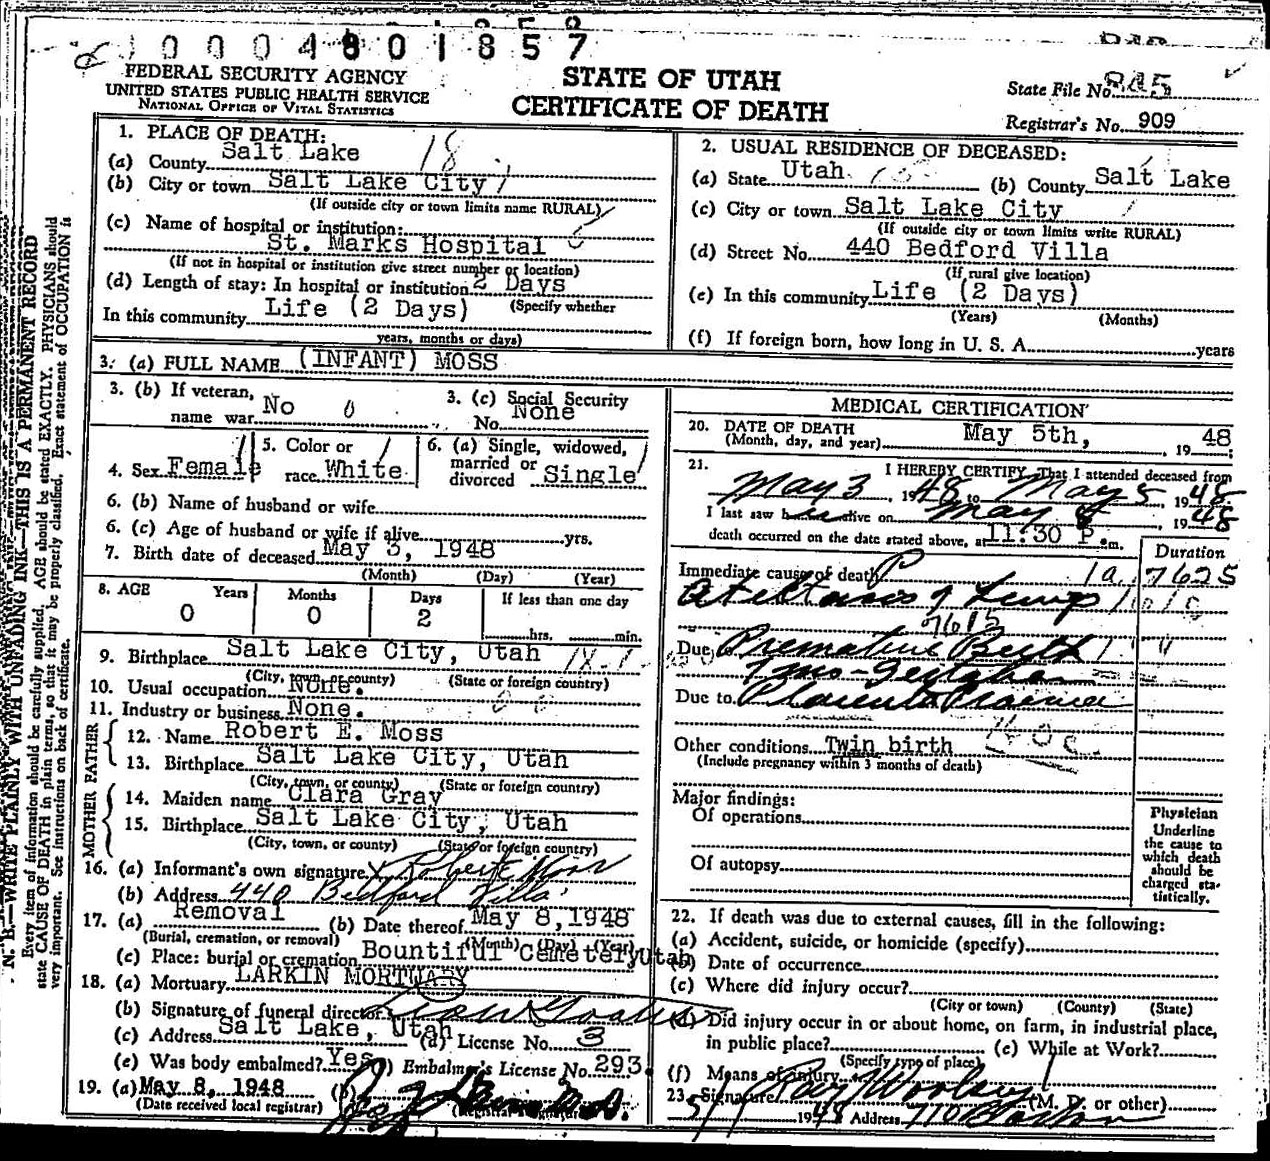 0004801857
FEDERAL SECURITY AGENCY
UNITED STATES PUBLIC HEALTH SERVICE
NATIONAL OFFICE OF VITAL STATISTICS
STATE OF UTAH
CERTIFICATE OF DEATH
State File No. 845
Registrar's No. 909
1. PLACE OF DEATH:
(a) County Salt Lake 18
(b) City or town Salt Lake City
(If outside city or town limits name RURAL)
(c) Name of hospital or institution:
St. Marks Hospital
(If not in hospital or institution give street number or location)
(d) Length of stay: In hospital or institution 2 Days
(Specify whether
In this community Life (2 Days)
years, months or days)
2. USUAL RESIDENCE OF DECEASED:
(a) State Utah (b) County Salt Lake
(c) City or town Salt Lake City
(If outside city or town limits write RURAL)
(d) Street No. 440 Bedford Villa
(If rural give location)
(e) In this community Life (2 Days)
(Years) (Months)
(f) If foreign born, how long in U. S. A. years
3. (a) FULL NAME (INFANT) MOSS
3. (b) If veteran, name war No 0
3. (c) Social Security No. None
4. Sex Female
5. Color or race White
6. (a) Single, widowed, married or divorced Single
6. (b) Name of husband or wife
6. (c) Age of husband or wife if alive yrs.
7. Birth date of deceased May 3, 1948
(Month) (Day) (Year)
8. AGE Years Months Days If less than one day
0 0 2 hrs. min.
9. Birthplace Salt Lake City, Utah
(City, town, or county) (State or foreign country)
10. Usual occupation None.
11. Industry or business None.
FATHER
12. Name Robert E. Moss
13. Birthplace Salt Lake City, Utah
(City, town, or county) (State or foreign country)
MOTHER
14. Maiden name Clara Gray
15. Birthplace Salt Lake City, Utah
(City, town, or county) (State or foreign country)
16. (a) Informant's own signature X Robert E Moss
(b) Address 440 Bedford Villa
17. (a) Removal (b) Date thereof May 8, 1948
(Burial, cremation, or removal) (Month) (Day) (Year)
(c) Place: burial or cremation Bountiful Cemetery Utah
18. (a) Mortuary LARKIN MORTUARY
(b) Signature of funeral director
(c) Address Salt Lake, Utah (d) License No. 3
(e) Was body embalmed? Yes (f) Embalmer's License No. 293
19. (a) May 8, 1948 (b)
(Date received local registrar) (Registrar's signature)
MEDICAL CERTIFICATION
20. DATE OF DEATH
(Month, day, and year) May 5th, 1948;
21. I HEREBY CERTIFY, That I attended deceased from
May 3, 1948 to May 5, 1948
I last saw her alive on May 5, 1948
death occurred on the date stated above, at 11:30 P.m.
Duration
Immediate cause of death 7625
Atelectasis of Lungs
7615
Due to Premature Birth
7 mo-Gestation
Due to Placenta Praevia
Other conditions Twin birth
(Include pregnancy within 3 months of death)
Major findings:
Of operations
Of autopsy
Physician
Underline
the cause to
which death
should be
charged sta-
tistically.
22. If death was due to external causes, fill in the following:
(a) Accident, suicide, or homicide (specify)
(b) Date of occurrence
(c) Where did injury occur?
(City or town) (County) (State)
(d) Did injury occur in or about home, on farm, in industrial place,
in public place? (e) While at Work?
(Specify type of place)
(f) Means of injury
23. Signature Ray Woolsey (M. D. or other)
1948 Address 710
N. B.—WRITE PLAINLY WITH UNFADING INK—THIS IS A PERMANENT RECORD
Every item of information should be carefully supplied. AGE should be stated EXACTLY. PHYSICIANS should
state CAUSE OF DEATH in plain terms, so that it may be properly classified. Exact statement of OCCUPATION is
very important. See instructions on back of certificate.